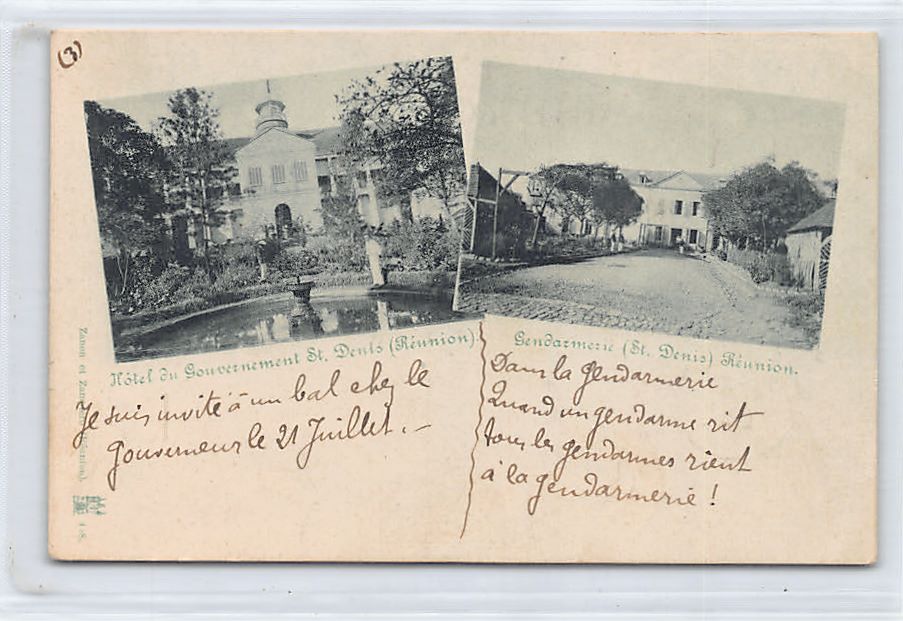 (3)
Hôtel du Gouvernement St. Denis (Réunion).
Gendarmerie (St. Denis) Réunion.
Je suis invité à un bal chez le
gouverneur le 21 Juillet. –
Dans la gendarmerie
Quand un gendarme rit
tous les gendarmes rient
à la gendarmerie !
Zanon et